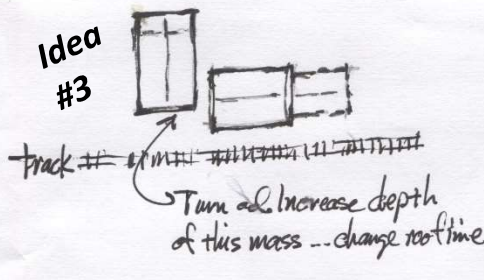 Idea
#3
track
Turn and Increase depth
of this mass ... change roofline